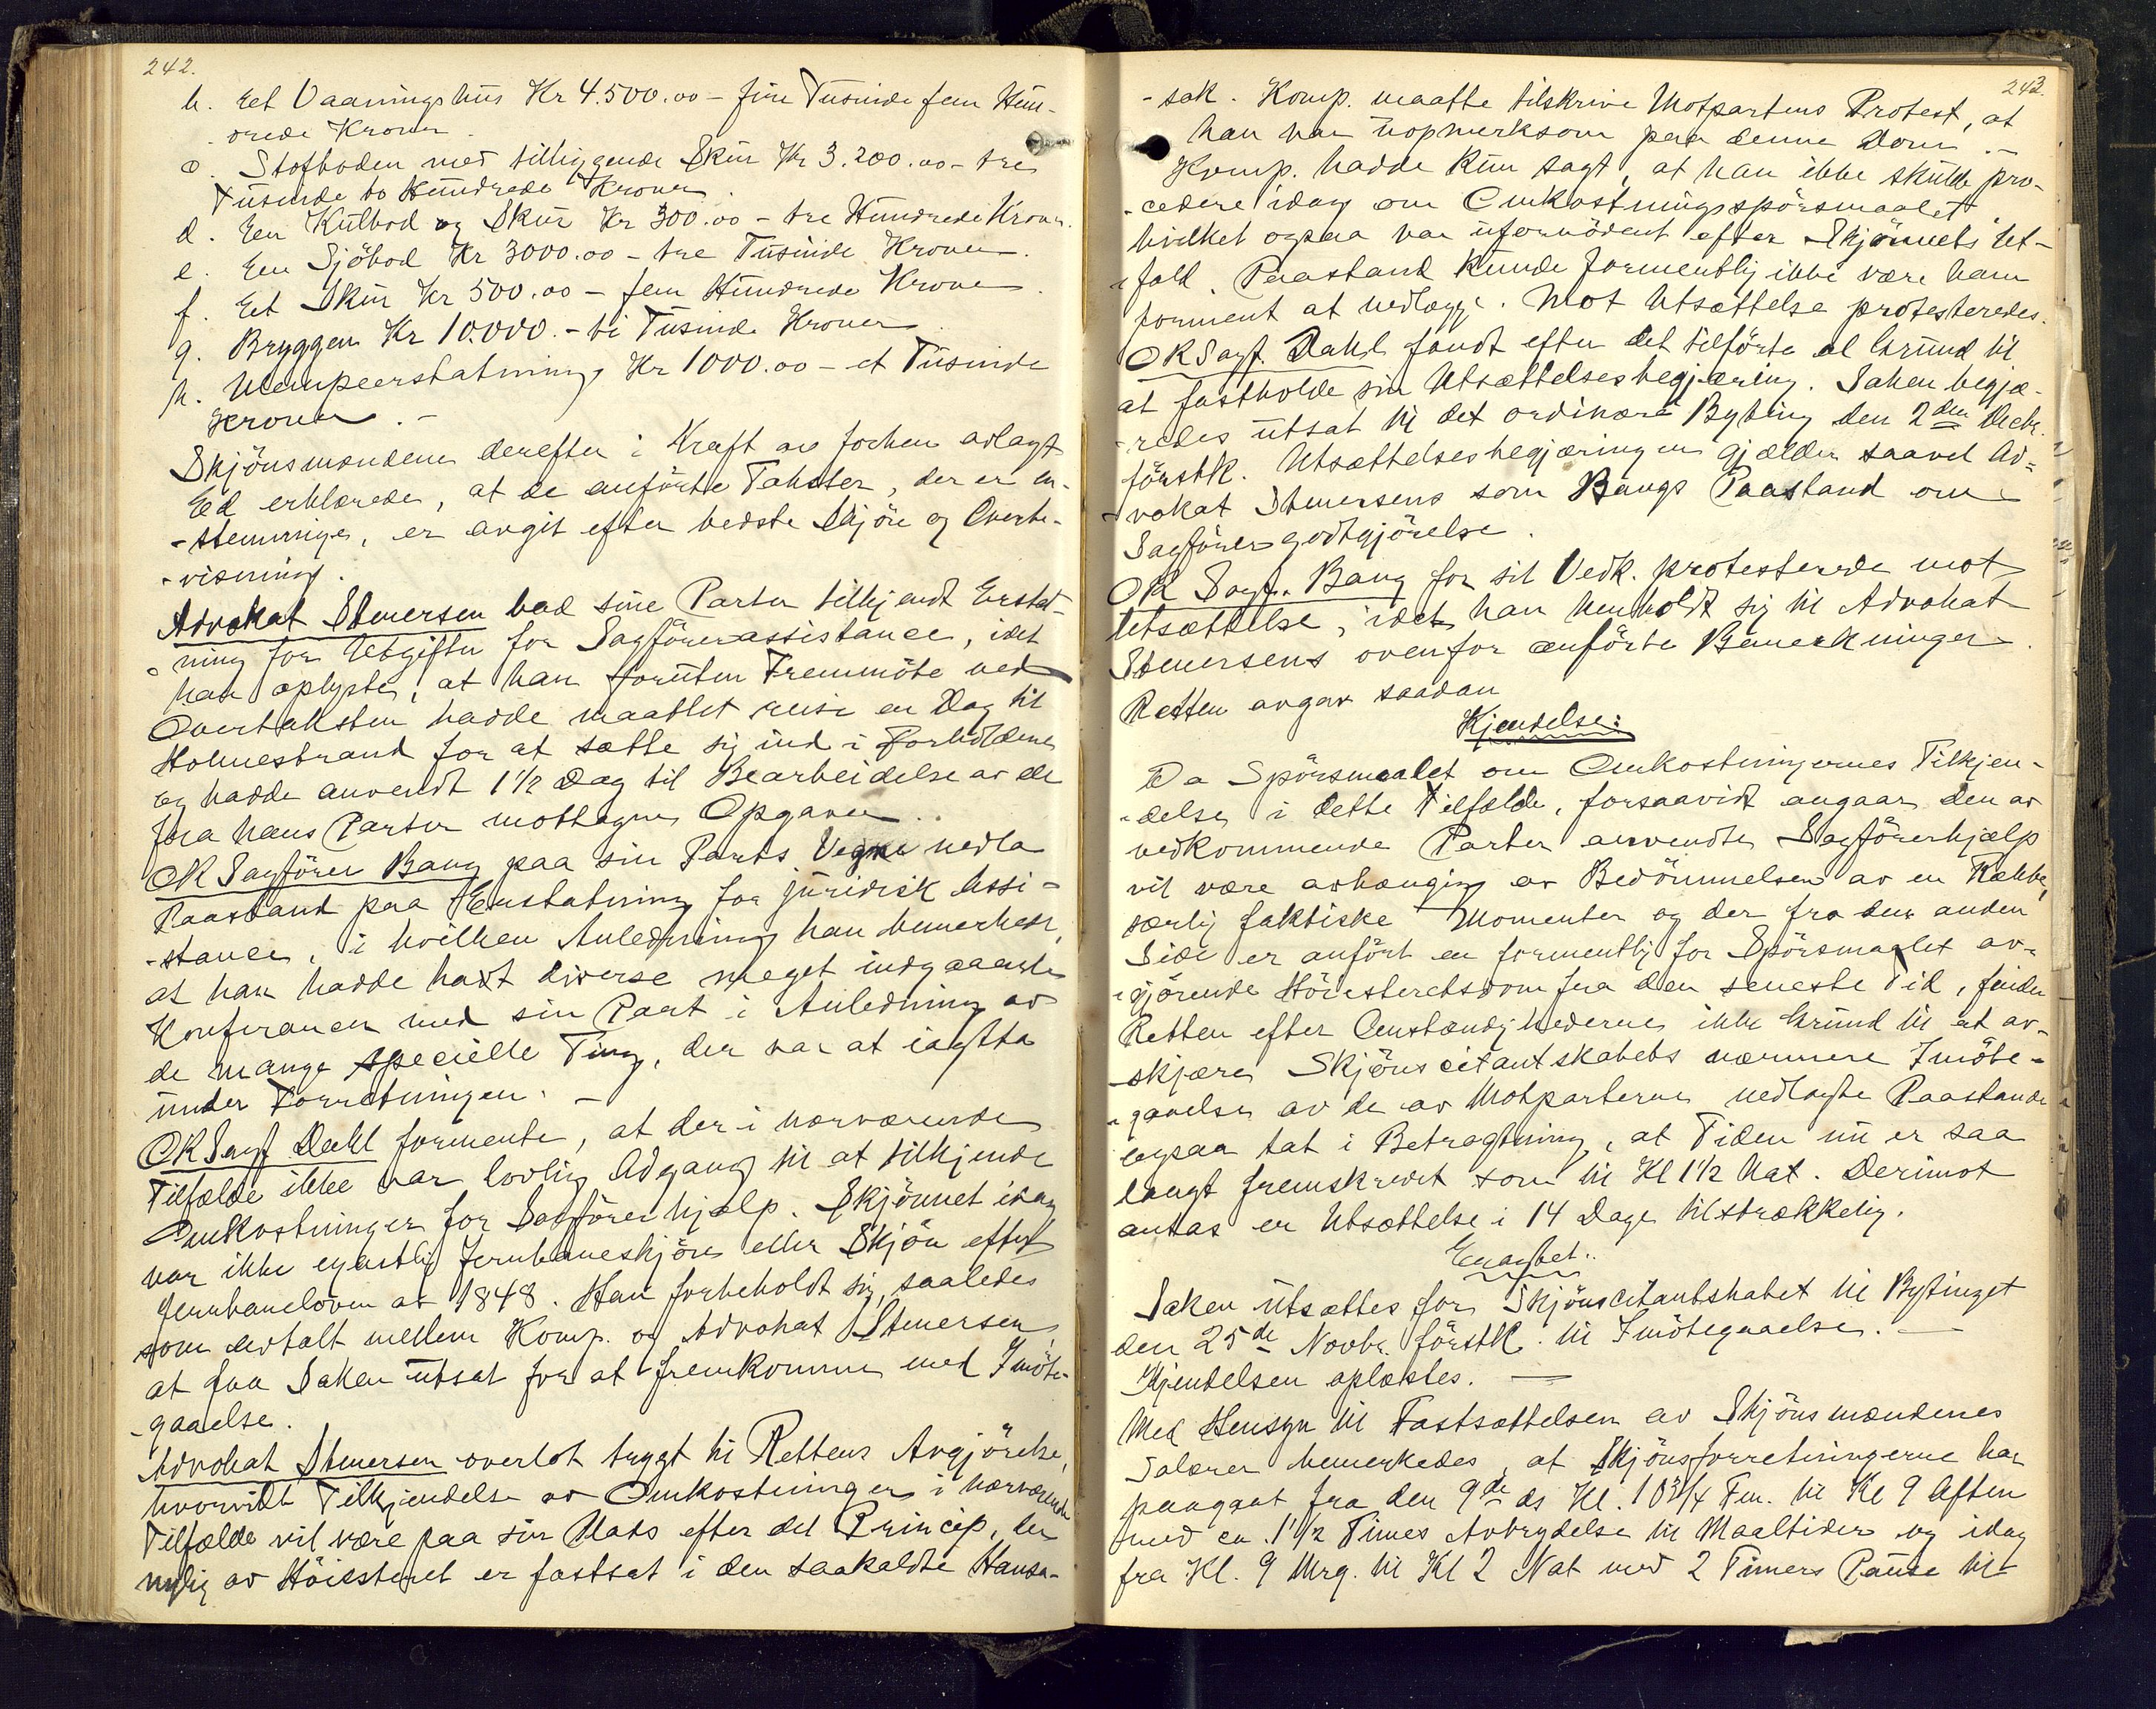 242.
b. Eet Vaaningshus Kr 4.500.00 – fire Tusinde fem Hun-
drede Kroner.
c. Stofboden med tilliggende Skur Kr 3.200.00 – tre
Tusinde to Hundrede Kroner.
d. Een Kulbod og Skur Kr 300.00 – tre Hundrede Kroner.
e. Een Sjöbod Kr 3000.00 – tre Tusinde Kroner.
f. Eet Skur Kr 500.00 – fem Hundrede Kroner.
g. Bryggen Kr 10.000. – ti Tusinde Kroner.
h. Ulempeerstatning Kr 1000.00 – et Tusinde
Kroner. –
Skjönsmændene derefter i Kraft av forhen avlagt
Ed erklærede, at de anförte Takster, der er en-
-stemmige, er avgit efter bedste Skjön og Overbe-
-visning.
Advokat Stenersen bad sine Parter tilkjendt Erstat-
-ning for Utgifter for Sagförerassistance, idet
han oplyste, at han foruten Fremmöte ved
Overtaksten hadde maattet reise en Dag til
Holmestrand for at sætte sig ind i Forholdene
og hadde anvendt 1 1/2 Dag til Bearbeidelse av de
fra hans Parter mottagne Opgaver.
OR Sagförer Bang paa sin Parts Vegne nedla
Paastand paa Erstatning for juridisk Assi-
-stance, i hvilken Anledning han bemerket,
at han hadde hadt diverse meget indgaaende
Konferancer med sin Part i Anledning av
de mange specielle Ting, der var at iagtta
under Forretningen. –
OR Sagf Dahl formente, at der i nærværende
Tilfælde ikke var lovlig Adgang til at tilkjende
Omkostninger for Sagförerhjælp. Skjönnet idag
var ikke egentlig Jernbaneskjön eller Skjön efter
Jernbaneloven av 1848. Han forbeholdt sig, saaledes
som avtalt mellem Komp. og Advokat Stenersen,
at faa Saken utsat for at fremkomme med Imöte-
-gaaelse.
Advokat Stenersen overlot trygt til Rettens Avgjörelse,
hvorvidt Tilkjendelse av Omkostninger i nærværende
Tilfælde vil være paa sin Plads efter det Princip, der
nylig av Höiesteret er fastsat i den saakaldte Hansa-
243.
-sak. Komp. maatte tilskrive Motpartens Protest, at
han var uopmerksom paa denne Dom. –
Komp. hadde kun sagt, at han ikke skulde pro-
-cedere idag om Omkostningsspörsmaalet
hvilket ogsaa var ufornödent efter Skjönnets Ut-
-fald. Paastand kunde formentlig ikke være ham
forment at nedlægge. Mot Utsættelse protesteredes.
OR Sagf. Dahl fandt efter det tilförte al Grund til
at fastholde sin Utsættelsesbegjæring. Saken begjæ-
-redes utsat til det ordinære Byting den 2den Decbr.
förstk. Utsættelsesbegjæringen gjælder saavel Ad-
-vokat Stenersens som Bangs Paastand om
Sagförergodtgjörelse.
OR Sagf. Bang for sit Vedk. protesterede mot
Utsættelse, idet han henholdt sig til Advokat
Stenersens ovenfor anförte Bemerkninger.
Retten avgav saadan
Kjendelse:
Da Spörsmaalet om Omkostningernes Tilkjen-
-delse i dette Tilfælde, forsaavidt angaar den av
vedkommende Parter anvendte Sagförerhjælp
vil være avhængig av Bedömmelsen av en Række,
særlig faktiske Momenter og der fra den anden
Side er anfört en formentlig for Spörsmaalet av-
-gjörende Höiesteretsdom fra den seneste Tid, finder
Retten efter Omstændighederne ikke Grund til at av-
-skjære Skjönscitantskabets nærmere Imöte-
-gaaelse av de av Motparterne nedlagte Paastande
ogsaa tat i Betragtning, at Tiden nu er saa
langt fremskredet som til Kl 1 1/2 Nat. Derimot
antas en Utsættelse i 14 Dage tilstrækkelig.
Eragtet:
Saken utsættes for Skjönscitantskabet til Bytinget
den 25de Novbr. förstk. til Imötegaaelse. –
Kjendelsen oplæstes. –
Med Hensyn til Fastsættelsen av Skjönsmændenes
Salærer bemerkedes, at Skjönsforretningerne har
paagaat fra den 9de ds Kl. 10 3/4 Fm. til Kl 9 Aften
med en 1 1/2 Times Avbrydelse til Maaltider og idag
fra Kl. 9 Mrg. til Kl 2 Nat med 2 Timers Pause til